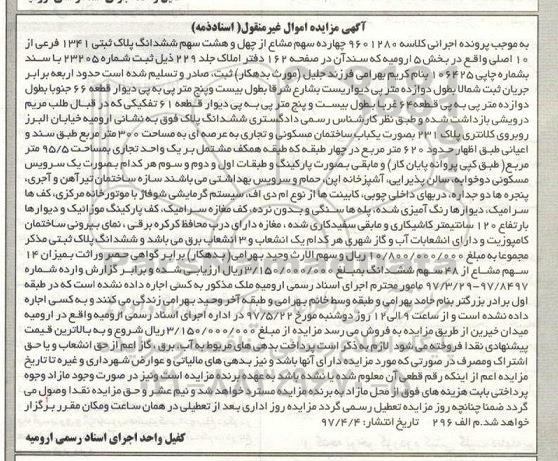 آگهی مزایده اموال غیرمنقول( اسناد ذمه)
به موجب پرونده اجرائی کلاسه ۹۶۰۱۲۸۰ چهارده سهم مشاع از چهل و هشت سهم ششدانگ پلاک ثبتی ۱۳۴۱ فرعی از
۱۰ اصلی واقع در بخش ۵ ارومیه که سند آن در صفحه ۱۶۲ دفتر املاک جلد ۲۲۹ ذیل ثبت شماره ۲۳۲۰۵ با سند
بشماره چاپی ۱۰۶۴۲۵ بنام کریم بهرامی فرزند جلیل (مورث بدهکار) ثبت، صادر و تسلیم شده است حدود اربعه برابر
جریان ثبت شمالا بطول دوازده متر پی دیواریست بشارع شرقا بطول بیست و پنج متر پی به پی دیوار قطعه ۶۶ جنوبا بطول
دوازده متر پی به پی قطعه ۶۴ غربا بطول بیست و پنج متر پی به پی دیوار قطعه ۶۱ تفکیکی که در قبال طلب مریم
درویشی بازداشت شده و طبق نظر کارشناس رسمی دادگستری ششدانگ پلاک فوق به نشانی ارومیه خیابان البرز
روبروی کلانتری پلاک ۲۳۱ بصورت یکباب ساختمان مسکونی و تجاری به عرصه ای به مساحت ۳۰۰ متر مربع طبق سند و
اعیانی طبق اظهار حدود ۶۲۰ متر مربع در چهار طبقه که طبقه همکف مشتمل بر یک واحد تجاری بمساحت ۹۵/۵ متر
مربع( طبق کپی پروانه پایان کار) و مابقی بصورت پارکینگ و طبقات اول و دوم و سوم هر کدام بصورت یک سرویس
مسکونی دوخوابه، سالن پذیرایی، آشپزخانه اپن، حمام و سرویس بهداشتی می باشند سازه ساختمان تیرآهن و آجری،
پنجره ها دو جداره، دربهای داخلی چوبی، کابینت ها از نوع ام دی اف، سیستم گرمایشی شوفاژ با موتورخانه مرکزی، کف ها
سرامیک، دیوارها رنگ آمیزی شده، پله ها سنگی و بدون نرده، کف مغازه سرامیک، کف پارکینگ موزائیک و دیوارها
بارتفاع ۱۲۰ سانتیمتر کاشیکاری و مابقی سفیدکاری شده ، مغازه دارای درب محافظ کرکره برقی ، نمای بیرونی ساختمان
کامپوزیت و دارای انشعابات آب و گاز شهری هر کدام یک انشعاب و ۳ انشعاب برق می باشد و ششدانگ پلاک ثبتی مذکر
مجموعا به مبلغ ۱۰/۸۰۰/۰۰۰/۰۰۰ ریال و سهم الارث وحید بهرامی (بدهکار) برابر گواهی حصر وراثت بمیزان ۱۴
سهم مشاع از ۴۸ سهم ششدانگ بمبلغ ۳/۱۵۰/۰۰۰/۰۰۰ ریال ارزیابی شده و برابر گزارش وارده شماره
۹۷/۳/۲۹-۹۷/۸۴۹۷ مامور محترم اجرای اسناد رسمی ارومیه ملک مذکور به کسی اجاره داده نشده است که در طبقه
اول برادر بزرگتر بنام حامد بهرامی و طبقه وسط خانم بهرامی و طبقه آخر وحید بهرامی زندگی می کنند و به کسی اجاره
داده نشده است و از ساعت ۹ الی ۱۲ روز دوشنبه مورخ ۹۷/۵/۲۲ در اداره اجرای اسناد رسمی ارومیه واقع در ارومیه
میدان خیرین از طریق مزایده به فروش می رسد مزایده از مبلغ ۳/۱۵۰/۰۰۰/۰۰۰ ریال شروع و به بالاترین قیمت
پیشنهادی نقدا فروخته می شود. لازم به ذکر است پرداخت بدهی های مربوط به آب، برق، گاز اعم از حق انشعاب و یا حق
اشتراک و مصرف در صورتی که مورد مزایده دارای آنها باشد و نیز بدهی های مالیاتی و عوارض شهرداری و غیره تا تاریخ
مزایده اعم از اینکه رقم قطعی آن معلوم شده یا نشده باشد به عهده برنده مزایده است ونیز در صورت وجود مازاد وجوه
پرداختی بابت هزینه های فوق از محل مازاد به برنده مزایده مسترد خواهد شد و نیم عشر و حق مزایده نقدا وصول می
گردد ضمنا چنانچه روز مزایده تعطیل رسمی گردد مزایده روز اداری بعد از تعطیلی در همان ساعت ومکان مقرر برگزار
خواهد شد.م الف ۲۹۶ تاریخ انتشار: ۹۷/۴/۴
کفیل واحد اجرای اسناد رسمی ارومیه